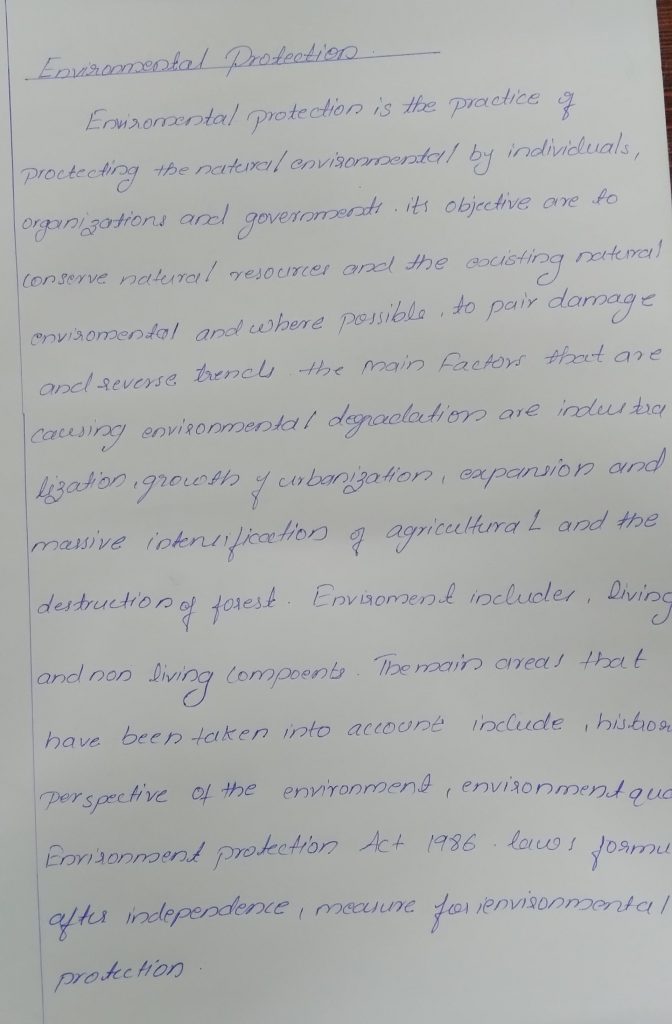 Environmental Protection
Enviromental protection is the practice of
proctecting the natural environmental by individuals,
organizations and governments. its objective are to
conserve natural resources and the excisting natural
enviromental and where possible, to pair damage
and reverse trends. the main factors that are
causing environmental degradation are industria
lization, growth of urbanization, expansion and
massive intensification of agricultural and the
destruction of forest. Enviroment includes, living
and non living compoents. The main areas that
have been taken into account include, histor
perspective of the environment, environment qua
Environment protection Act 1986. laws formu
after independence, measure for environmental
protection.